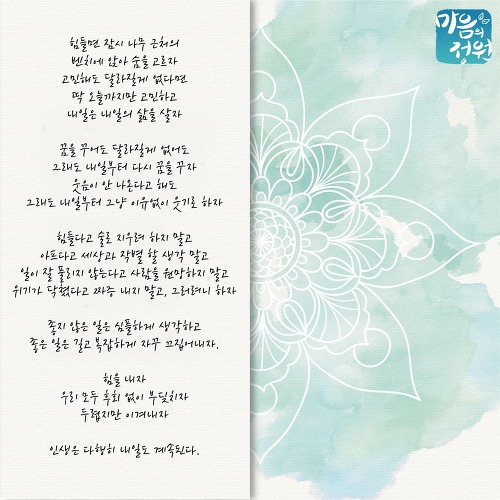 마음의
정원
힘들면 잠시 나무 근처의
벤치에 앉아 숨을 고르자
고민해도 달라질게 없다면
딱 오늘까지만 고민하고
내일은 내일의 삶을 살자
꿈을 꾸어도 달라질게 없어도
그래도 내일부터 다시 꿈을 꾸자
웃음이 안 나온다고 해도
그래도 내일부터 그냥 이유없이 웃기로 하자
힘들다고 술로 지우려 하지 말고
아프다고 세상과 작별 할 생각 말고
일이 잘 풀리지 않는다고 사람을 원망하지 말고
위기가 닥쳤다고 짜증 내지 말고, 그러려니 하자
좋지 않은 일은 심플하게 생각하고
좋은 일은 길고 복잡하게 자꾸 끄집어내자.
힘을 내자
우리 모두 후회 없이 부딪치자
두렵지만 이겨내자
인생은 다행히 내일도 계속된다.